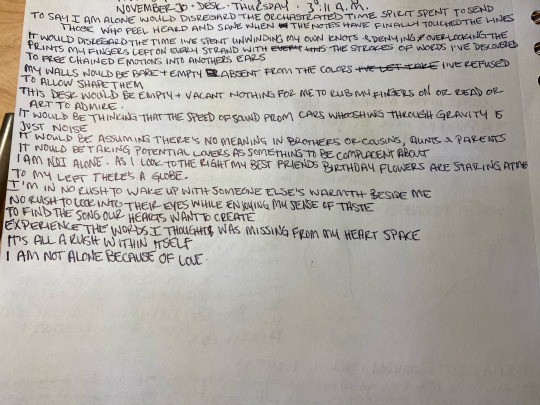 NOVEMBER 30 • DESK • THURSDAY • 3:11 A.M
TO SAY I AM ALONE WOULD DISREGARD THE ORCHASTRATED TIME SPIRIT SPENT TO SEND
THOSE WHO FEEL HEARD AND SANE WHEN THE NOTES HAVE FINALLY TOUCHED THE LINES
IT WOULD DISREGARD THE TIME I'VE SPENT UNWINDING MY OWN KNOTS & DENYING / OVERLOOKING THE
PRINTS MY FINGERS LEFT ON EVERY STRAND WITH THE STROKES OF WORDS I'VE DISCOVERED
TO FREE CHAINED EMOTIONS INTO ANOTHERS EARS
MY WALLS WOULD BE BARE + EMPTY ABSENT FROM THE COLORS I'VE REFUSED
TO ALLOW SHAPE THEM
THIS DESK WOULD BE EMPTY + VACANT NOTHING FOR ME TO RUB MY FINGERS ON OR READ OR
ART TO ADMIRE.
IT WOULD BE THINKING THAT THE SPEED OF SOUND FROM CARS WHOOSHING THROUGH GRAVITY IS
JUST NOISE
IT WOULD BE ASSUMING THERE'S NO MEANING IN BROTHERS OR COUSINS, AUNTS & PARENTS
IT WOULD BE TAKING POTENTIAL LOVERS AS SOMETHING TO BE COMPLACENT ABOUT
I AM NOT ALONE. AS I LOOK TO THE RIGHT MY BEST FRIENDS BIRTHDAY FLOWERS ARE STARING AT ME
TO MY LEFT THERE'S A GLOBE.
I'M IN NO RUSH TO WAKE UP WITH SOMEONE ELSE'S WARMTH BESIDE ME
NO RUSH TO LOOK INTO THEIR EYES WHILE ENJOYING MY SENSE OF TASTE
TO FIND THE SONG OUR HEARTS WANT TO CREATE
EXPERIENCE THE WORDS I THOUGHT WAS MISSING FROM MY HEART SPACE
IT'S ALL A RUSH WITHIN ITSELF
I AM NOT ALONE BECAUSE OF LOVE.